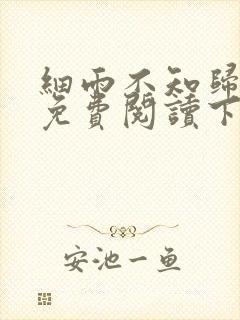 細雨不知歸
免費閱讀下
安池一鱼